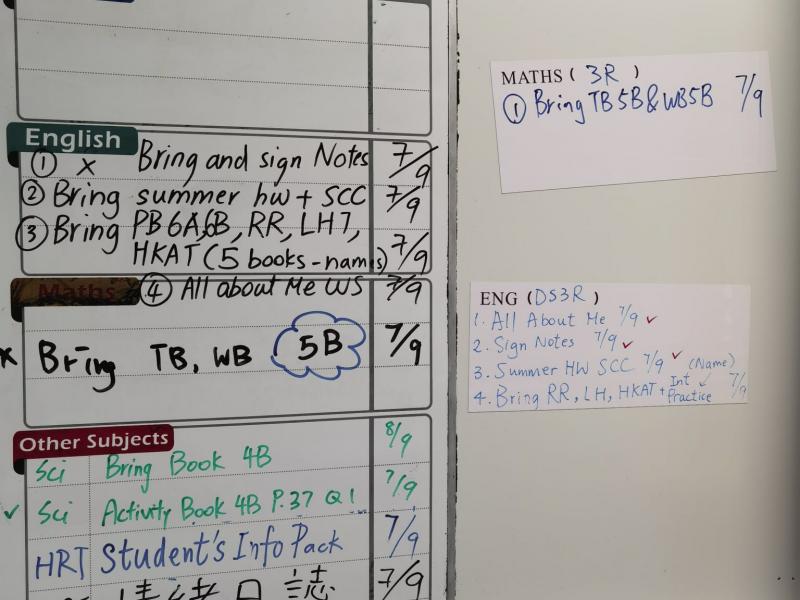 English
① x Bring and sign Notes 7/9
② Bring summer hw + SCC 7/9
③ Bring PB 6A,6B, RR, LH7, HKAT (5 books-names) 7/9
Maths ④ All about Me WS 7/9
x Bring TB, WB 5B 7/9
Other Subjects
Sci Bring Book 4B 8/9
✓ Sci Activity Book 4B P.37 Q1 7/9
HRT Student's Info Pack 7/9
7/9
MATHS ( 3R )
① Bring TB 5B & WB5B 7/9
ENG (DS3R )
1. All About Me 7/9 ✓
2. Sign Notes 7/9 ✓
3. Summer HW SCC 7/9 ✓ (Name)
4. Bring RR, LH, HKAT + Int Practice ✓ 7/9